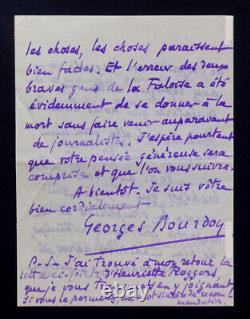 les choses, les choses paraissent
bien fades. Et l'erreur des deux
braves gens de la Faloise a été
évidemment de se donner à la
mort sans faire venir auparavant
de journaliste. J'espère pourtant
que votre pensée généreuse sera
comprise et que l'on vous suivra.
A bientôt. Je suis vôtre
bien cordialement
Georges Bourdon
P.-S. J'ai trouvé à mon retour la
lettre ci-jointe d'Henriette Roggers,
que je vous
si vous le permettez,